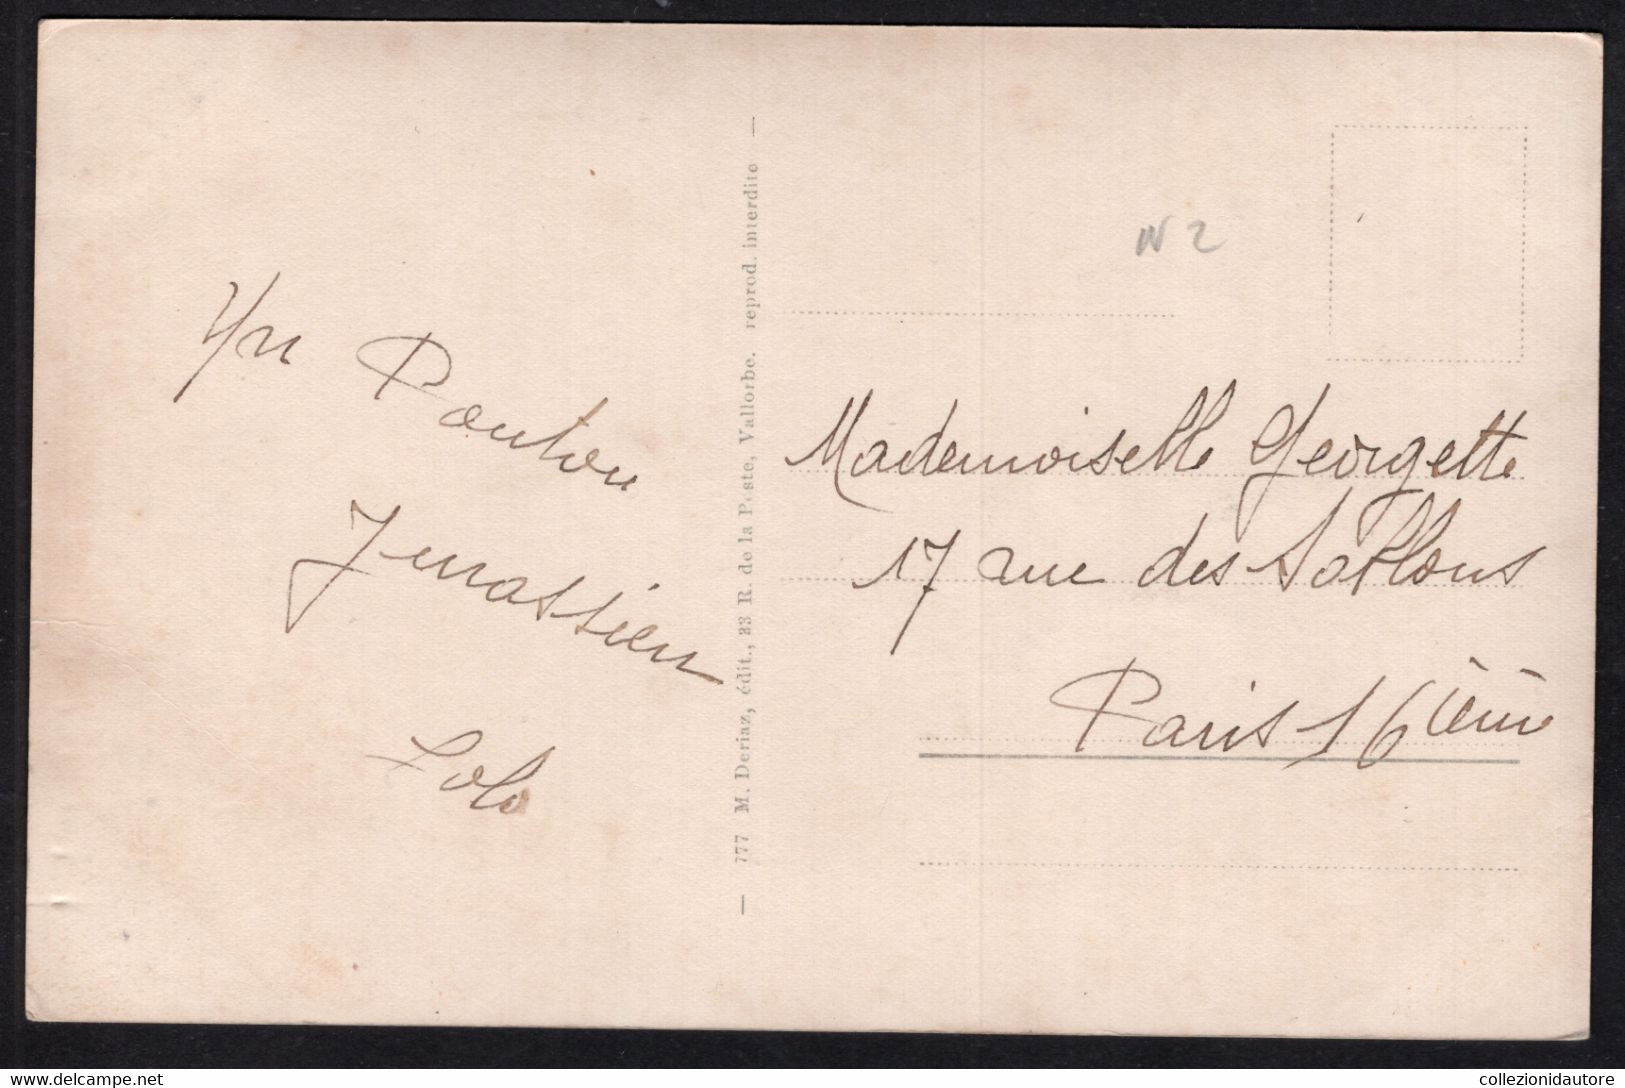 Un
Toutou
Jurassien
Lolo
— 777 M. Deriaz, édit., 23 R. de la Poste, Vallorbe. reprod. interdite —
N 2
Mademoiselle Georgette
17 rue des Sablons
Paris 16ième
collezionidautore
www.delcampe.net